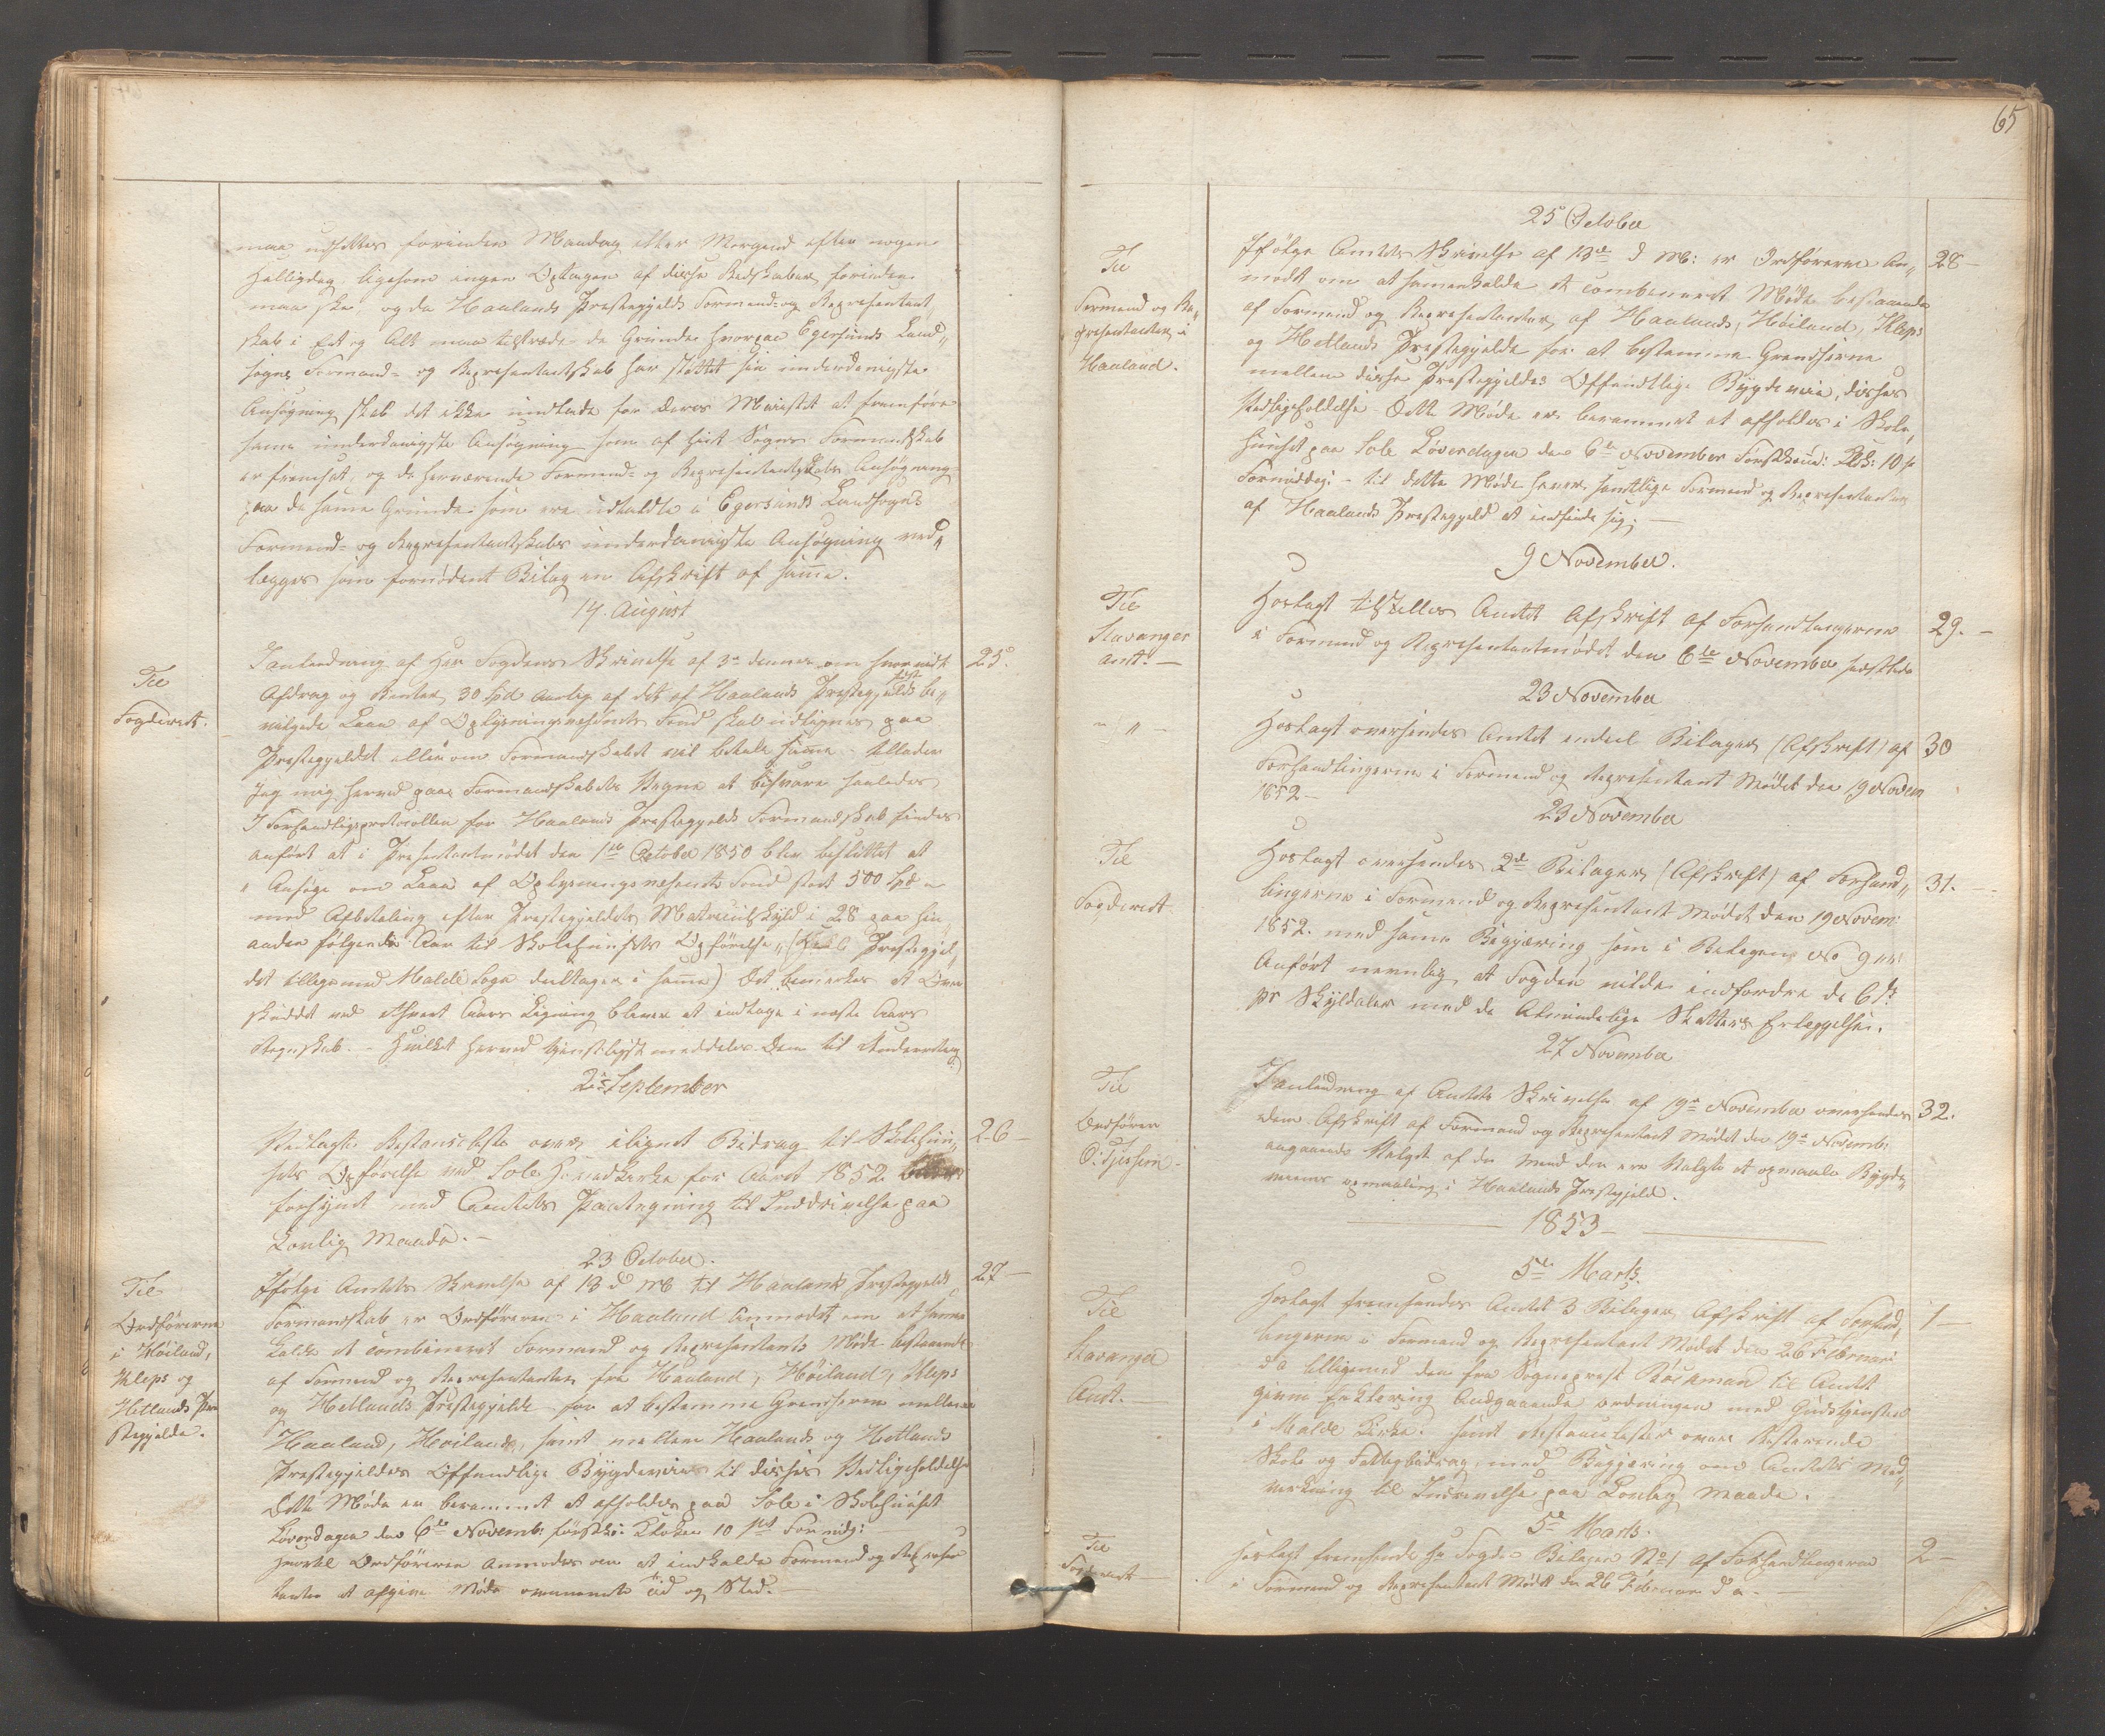 maa udsættes forinden Mandag eller Morgend efter nogen
Helligdag, ligesom ingen Optagen af disse Redskaber forinden
maa ske, og da Haalands Præstegjelds Formend- og Representant
skab i Et og Alt maa tiltræde de Grunde hvorpaa Egersunds Land„
sogns Formand- og Representantskab har støttet sin underdanigste
Ansøgning skal det ikke undlade for Deres Majestæt at fremføre
samme underdanigste Ansøgning som af hiint Sogns Formandskab
er fremsat, og da herværende Formend- og Representantskabs Ansøgning
paa de samme Grunde som ere udhævdte i Egersunds Landsogns
Formend- og Representantskabs underdanigste Ansøgning ved„
lægges som fornødent Bilag en Afskrift af samme.
14. August
Til
Fogderiet.
I anledning af Her Fogdens Skrivelse af 3de dennes om hvorvidt 25.
Afdrag og Renter 30 Spd aarlig af det af Haalands Præstegjeld be„
vilgede Laan af Oplysningsvæsenets Fond skal udlignes paa
Præstegjeldet eller om Formandskabet vil betale samme – tillader
Jeg mig herved paa Formandskabets Vegne at besvare saaledes
I Forhandlingsprotocollen for Haalands Præstegjelds Formandskab findes
anført at i Præsentantmødet den 1ste October 1850 blev besluttet at
„Ansøge om Laan af Oplysningsvæsenets Fond stort 500 Spd „
med Afbetaling efter Præstegjeldets Matriculskyld i 28 paa hin
anden følgende Aar til Skolehusets Opførelse„ (hele Præstegjel„
det tilligemed Malde Sogn deeltager i samme) Det bemerkes at Over
skuddet ved ethvert Aars Ligning bliver at indtage i næste Aars
Regnskab. – Hvilket herved tjenstligst meddeles Dem til Underretning
25 September
Vedlagte Restanceliste over ilignet Bidrag til Skolehuu„ 26 –
sets Opførelse ved Sole Hovedkirke for Aaret 1852
forsynt med Amtets Paategning til Inddrivelse paa
Lovlig Maade. –
23 October.
Til
Ordførerne
i Høiland,
Kleps og
Hetlands Præ
stegjelde.
Ifølge Amtets Skrivelse af 13 d M til Haalands Præstegjelds 27 –
Formandskab er Ordføreren i Haaland Anmodet om at samen
kalde et combineret Formend og Representants Møde bestaaende
af Formend og Representanter fra Haaland, Høiland, Kleps
og Hetlands Præstegjelde – for at bestemme Grendserne mellem
Haaland, Høiland, samt mellem Haalands og Hetlands
Præstegjelders Offendtlige Bygdeveie til disses Vedligeholdelse
Dette Møde er berammet at afholdes paa Sole i Skolehuuset
Løverdagen den 6te Novemb: førstk: Klokken 10 Fmidg: –
hvortil Ordføreren anmodes om at indkalde Formend og Represen
tanter at afgive Møde ovennevnte Tid og Sted.
65
25 October
Til
Formend og Re„
presentanter i
Haaland.
Ifølge Amtets Skrivelse af 13de d M: er Ordføreren An„ 28 –
modt om at samenkalde et combineret Møde bestaaende
af Formend og Representanter af Haalands, Høiland, Kleps
og Hetlands Præstegjelde for at bestemme Grendserne
mellem disse Præstegjelders Offendtlige Bygdeveie, disses
Vedligeholdelse – Dette Møde er berammet at afholdes i Skole„
huuset paa Sole Løverdagen den 6te November førstkomm: Klok: 10
Formiddag: – til dette Møde haver samtlige Formend og Representanter
af Haalands Præstegjeld at indfinde sig. –
9 November.
Til
Stavanger
Amt. –
Hoslagt tilstilles Amtet Afskrift af Forhandlingerne 29. –
i Formend og Representantmødet den 6te November sidstleden
23 November
„ –
Hoslagt oversendes Amtet endeel Bilager (Afskrift) af 30
Forhandlingerne i Formend og Representant Mødet den 19 Novem
1852 –
23 November
Til
Fogderiet
Hoslagt oversendes 2de Bilager (Afskrift) af Forhand„ 31. –
lingerne i Formend og Representant Mødet den 19 Novem:
1852. med samme Begjæring som i Bilagene No 9
Anført nemlig at Fogden vilde indfordre de 6
pr Skylddaler med de Almindelige Skatters Erlæggelse.
27 November
Til
Ordfører
O: Tjessem. –
I anledning af Amtets Skrivelse af 19de November oversendes 32.
Dem Afskrift af Formend og Representant Mødet den 19de Novemb:
angaaende Valget af de Mend der ere Valgte at opmaale Bygde„
veienes opmaaling i Haalands Præstegjeld.
1853 –
5te Marts.
Til
Stavanger
Amt. –
Hoslagt fremsendes Amtet 3 Bilager Afskrift af Forhand„ 1 –
lingerne i Formend og Representant Mødet den 26 Februar
d a tilligemed den fra Sogneprest Bøckman til Amtet
givne Erklering Angaaende ordningen med Gudstjensten
i Malde Kirke. samt Restancelister over Resterende
Skole og Fattigbidrag, med Begjæring om Amtets Med„
virkning til Inddrivelse paa Lovlig Maade.
5te Marts.
Til
Fogderiet –
Hoslagt fremsendes Hr Foged Bilagen No 1 af Forhandlingerne 2 –
i Formend og Representant Mødet den 26 Februar d a. –